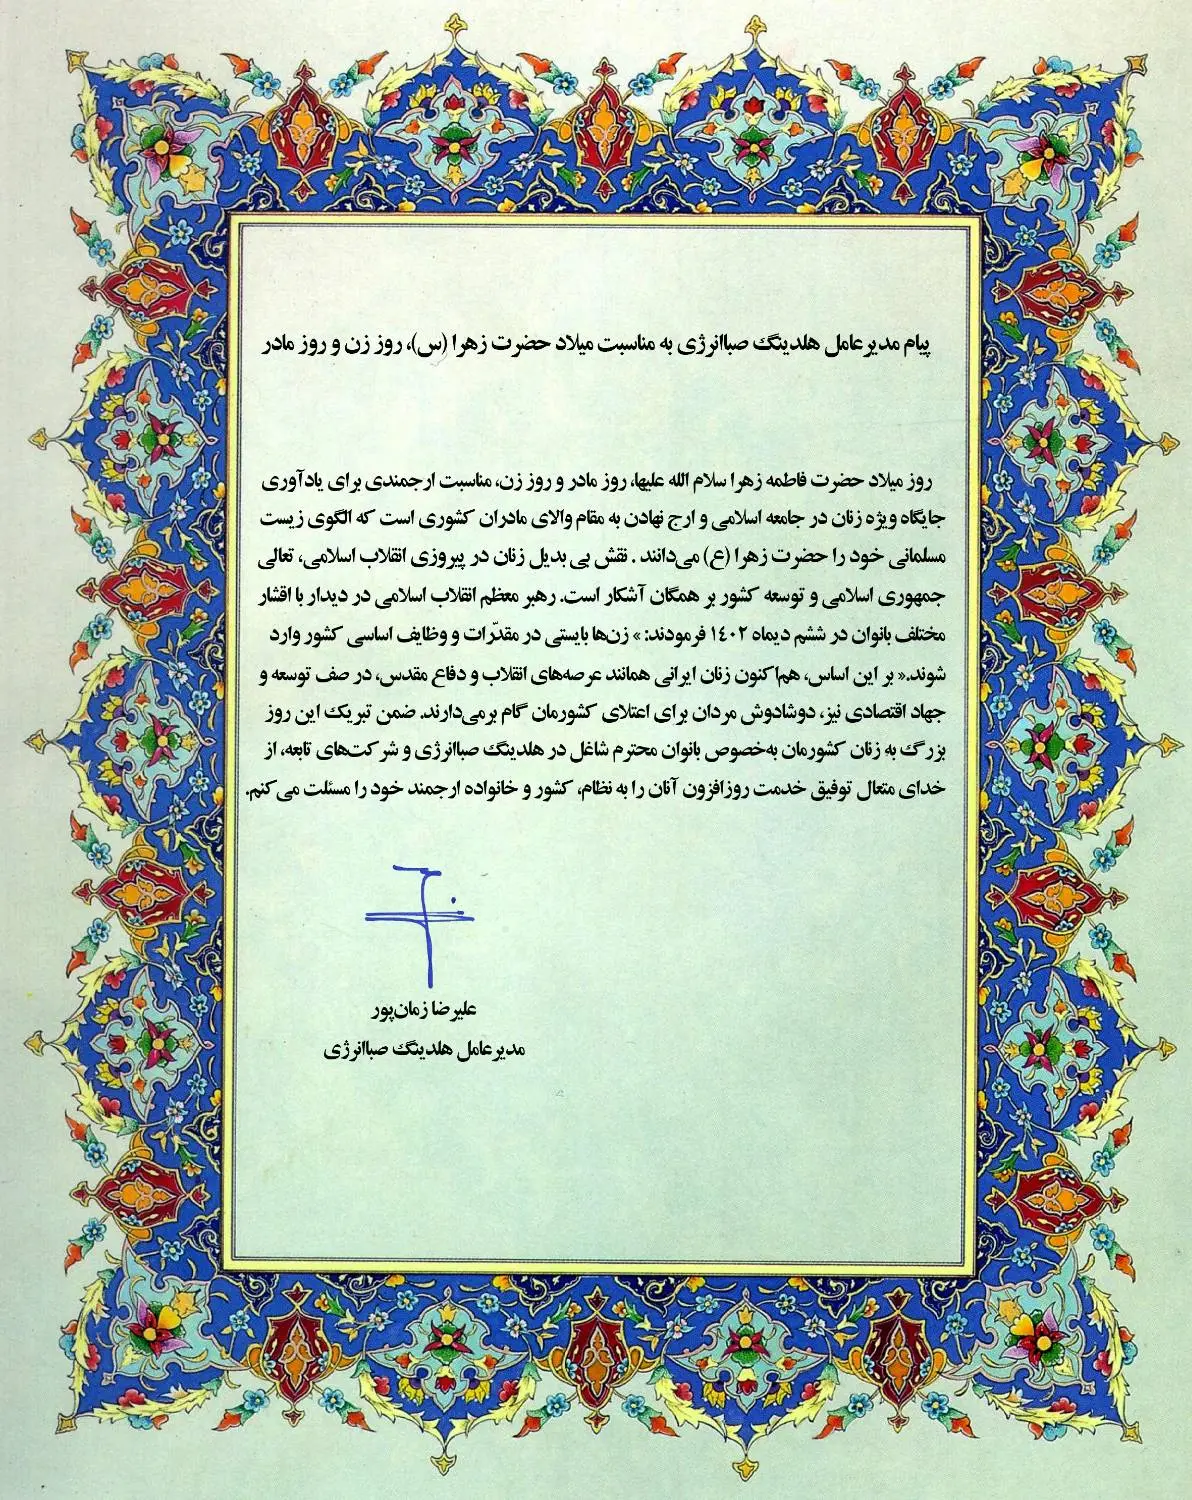 پیام مدیرعامل هلدینگ صباانرژی به مناسبت میلاد حضرت زهرا (س)، روز زن و روز مادر
روز میلاد حضرت فاطمه زهرا سلام الله علیها، روز مادر و روز زن، مناسبت ارجمندی برای یادآوری
جایگاه ویژه زنان در جامعه اسلامی و ارج نهادن به مقام والای مادران کشوری است که الگوی زیست
مسلمانی خود را حضرت زهرا (ع) می‌دانند . نقش بی بدیل زنان در پیروزی انقلاب اسلامی، تعالی
جمهوری اسلامی و توسعه کشور بر همگان آشکار است. رهبر معظم انقلاب اسلامی در دیدار با اقشار
مختلف بانوان در ششم دیماه ۱٤۰۲ فرمودند: » زن‌ها بایستی در مقدّرات و وظایف اساسی کشور وارد
شوند.« بر این اساس، هم‌اکنون زنان ایرانی همانند عرصه‌های انقلاب و دفاع مقدس، در صف توسعه و
جهاد اقتصادی نیز، دوشادوش مردان برای اعتلای کشورمان گام برمی‌دارند. ضمن تبریک این روز
بزرگ به زنان کشورمان به‌خصوص بانوان محترم شاغل در هلدینگ صباانرژی و شرکت‌های تابعه، از
خدای متعال توفیق خدمت روزافزون آنان را به نظام، کشور و خانواده ارجمند خود را مسئلت می کنم.
علیرضا زمان‌پور
مدیرعامل هلدینگ صباانرژی